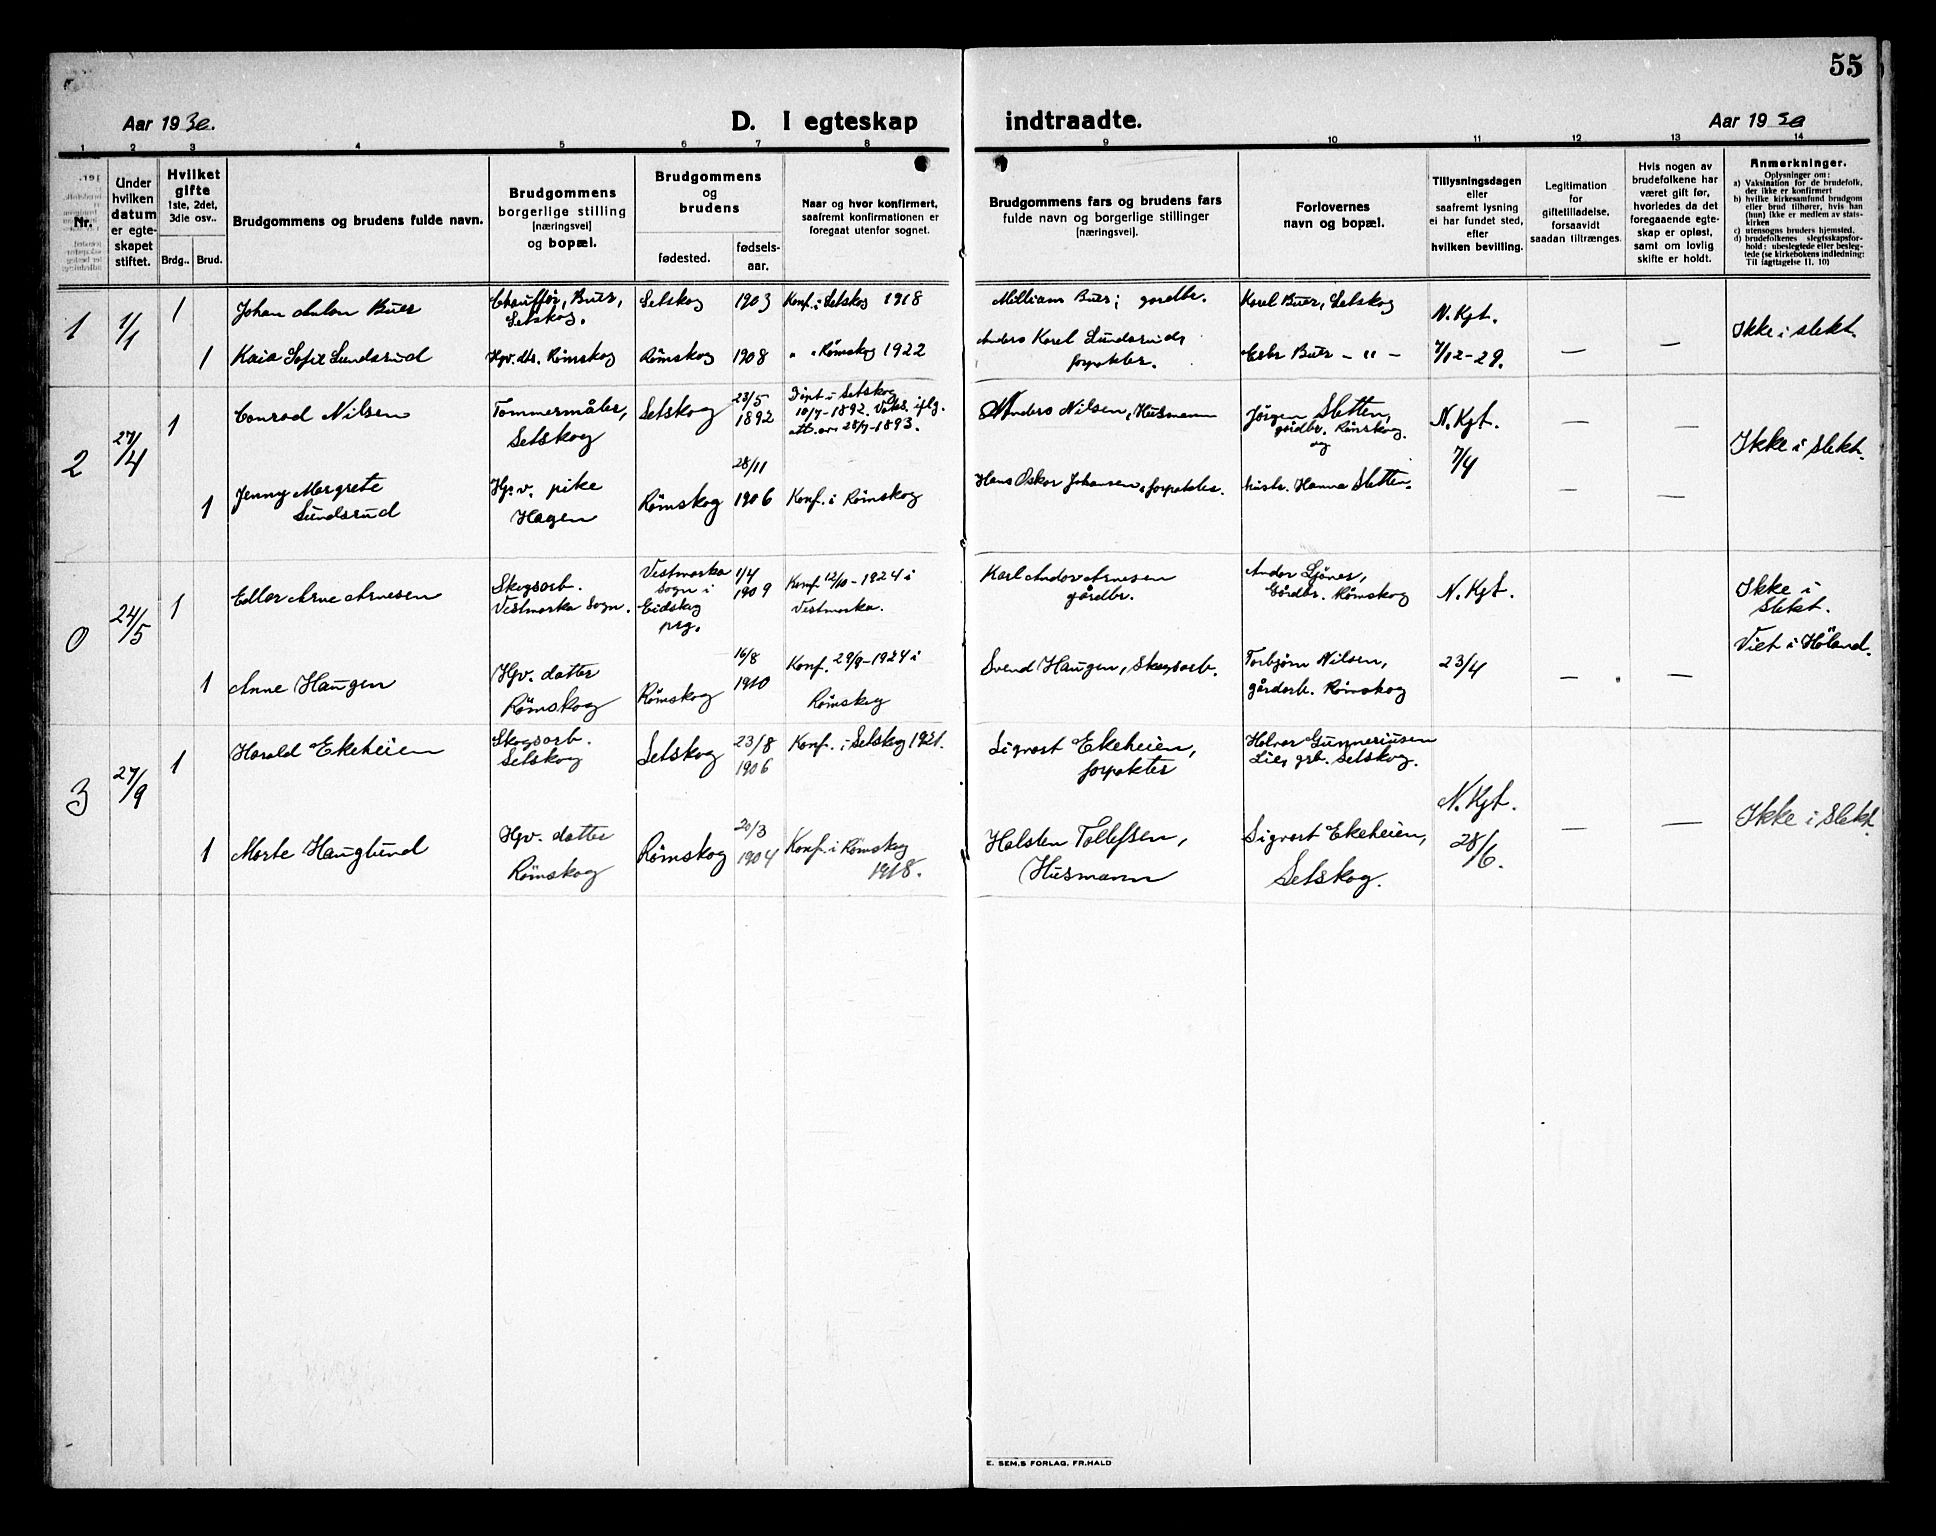 55
Aar 1930.
D. I egteskap indtraadte.
Aar 1930
1 2 3 4 5 6 7 8 9 10 11 12 13 14
Nr.
Under hvilken datum er egteskapet stiftet.
Hvilket gifte
1ste, 2det, 3die osv..
Brdg.. Brud.
Brudgommens og brudens fulde navn.
Brudgommens borgerlige stilling [næringsvei] og bopæl.
Brudgommens og brudens
fødested.
fødsels-aar.
Naar og hvor konfirmert, saafremt konfirmationen er foregaat utenfor sognet.
Brudgommens fars og brudens fars fulde navn og borgerlige stillinger [næringsvei].
Forlovernes navn og bopæl.
Tillysningsdagen eller saafremt lysning ei har fundet sted, efter hvilken bevilling.
Legitimation for giftetilladelse, forsaavidt saadan tiltrænges.
Hvis nogen av brudefolkene har været gift før, hvorledes da det foregaaende egteskap er opløst, samt om lovlig skifte er holdt.
Anmerkninger.
Oplysninger om:
a) Vaksination for de brudefolk, der ikke er konfirmert
b) hvilke kirkesamfund brudgom eller brud tilhører, hvis han (hun) ikke er medlem av statskirken
c) utensogns bruders hjemsted.
d) brudefolkenes slegtsskapsforhold: ubeslegtede eller beslegtede (se kirkebokens indledning: Til iagttagelse II, 10)
1 1/1 1 Johan Anton Buer Chauffør, Buer, Setskog. Setskog 1903 Konf. i Setskog 1918 Milliam Buer; gardbr. Karl Buer, Setskog N. Kgt. Ikke i slekt.
1 Kaia Sofie Lundsrud Hgv. dtr. Rømskog Rømskog 1908 " " Rømskog 1922 Anders Karel Lundsrud, forpakter. Buer – " – 7/12-29. — —
2 27/4 1 Conrad Nilsen Tømmermåler, Setskog Setskog 23/5 1892 Døpt i Setskog 10/7-1892. Vaks. iflg. att. av 28/7-1893. Anders Nilsen, Husmann Jørgen Sletten, gårdbr. Rømskog. og N. Kgt. 7/4 — — Ikke i Slekt.
1 Jenny Margrete Lundsrud Hgv. pike Hagen Rømskog 28/11 1906 Konf. i Rømskog Hans Oskar Johansen, forpakter. hustr. Hanna Sletten. — —
0 24/5 1 Edler Arne Arnesen Skogsarb. Vestmarka Sogn. Vestmarka Sogn i Eidskog prg. 1/4 1909 Konf. 12/10-1924 i Vestmarka. Karl Andor Arnesen gårdbr. Andor Ljöner, Gårdbr. Rømskog N. Kgt. Ikke i Slekt. Viet i Höland.
1 Anne Haugen Hgv. datter Römskog Römskog 16/8 1910 Konf. 29/9-1924 i Römskog Svend Haugen, Skogsarb. Torbjørn Nilsen, gårdarb. Rømskog 23/4 — —
3 27/9 1 Harald Ekeheien Skogsarb. Setskog Setskog 23/8 1906 Konf. i Setskog 1921. Sigvart Ekeheien, forpakter Halvor Gunneriusen Lie, grb. Setskog. N. Kgt. 28/6. — — Ikke i Slekt.
1 Marte Hauglund Hgv. datter Römskog Römskog 20/3 1904 Konf. i Rømskog 1918. Halsten Tollefsen, Husmann Sigvart Ekeheien, Setskog.
E. SEM,S FORLAG, FR.HALD